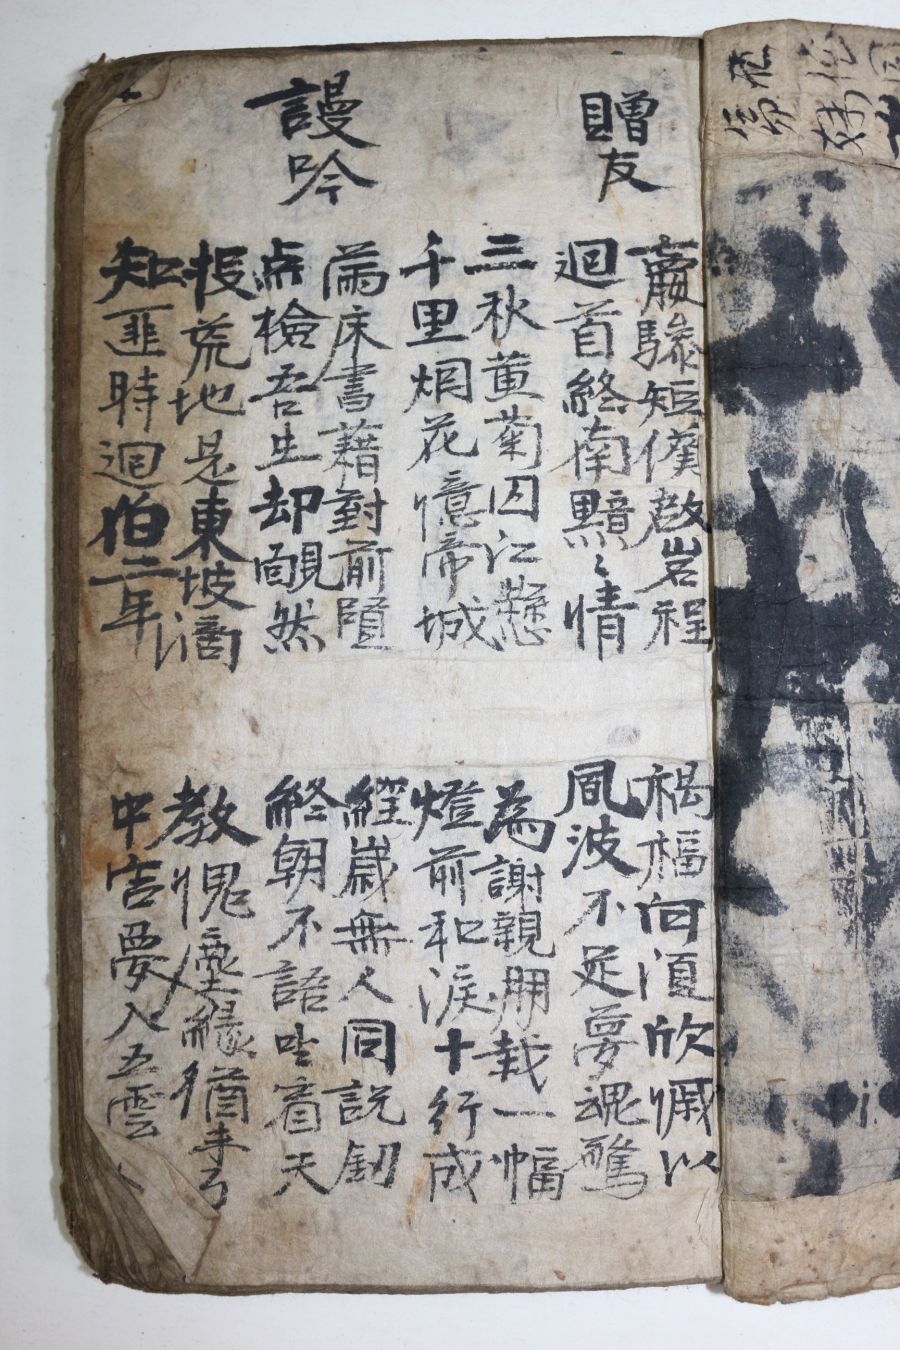 贈友
羸驂短僕啟岩程 禍福向須欣慽以
迴首終南黯〻情 風波不足夢魂驚
三秋黃菊囚江懸 為謝親朋栽一幅
千里烟花憶帝城 燈前和淚十行成
謾吟
床書藉對前 經歲無人同說釼
点檢吾生却靦然 終朝不語坐看天
投荒地是東坡謫 教愧塵緣猶未了
知匪時迴伯年 中宵夢入五雲